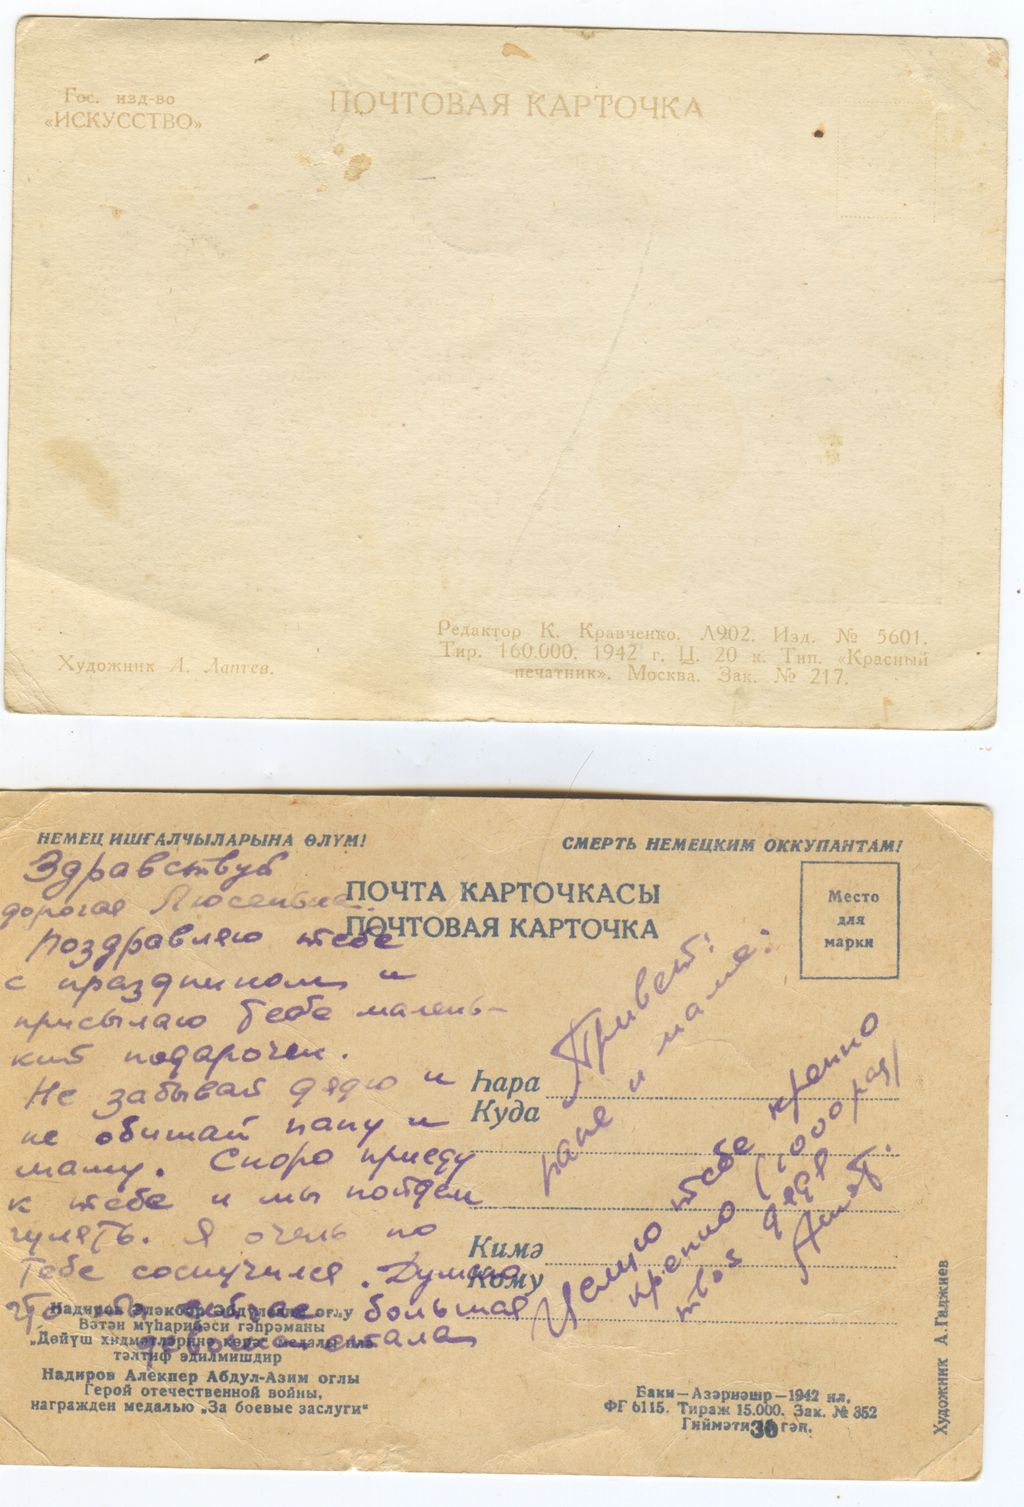 Гос. изд-во
«ИСКУССТВО»
ПОЧТОВАЯ КАРТОЧКА
Художник А. Лаптев.
Редактор К. Кравченко. Л902. Изд. № 5601.
Тир. 160.000. 1942 г. Ц. 20 к. Тип. «Красный
печатник». Москва. Зак. № 217.
НЕМЕЦ ИШҒАЛЧЫЛАРЫНА ӨЛҮМ!
СМЕРТЬ НЕМЕЦКИМ ОККУПАНТАМ!
ПОЧТА КАРТОЧКАСЫ
ПОЧТОВАЯ КАРТОЧКА
Место
для
марки
Здравствуй
дорогая Люсенька.
Поздравляю тебя
с праздником и
присылаю тебе малень-
кий подарочек.
Не забывай дядю и
не обижай папу и
маму. Скоро приеду
к тебе и мы пойдем
гулять. Я очень по
тебе соскучился. Думаю
что ты большая
девочка стала
Привет:
папе и маме:
Целую тебе крепко
крепко (1000 раз)
твоя дядя
Һара
Куда
Кимә
Кому
Надиров Әләкбәр Әбдүләзим оғлу
Вәтән муһарибәси гәһрәманы
„Дөйүш хидмәтләринә көрә“ медалы илә
тәлтиф эдилмишдир
Надиров Алекпер Абдул-Азим оглы
Герой отечественной войны,
награжден медалью „За боевые заслуги“
Баки—Азәрнәшр—1942 ил.
ФГ 6115. Тираж 15.000. Зак. № 352
Гиймәти 30 гәп.
Художник А. Гаджиев